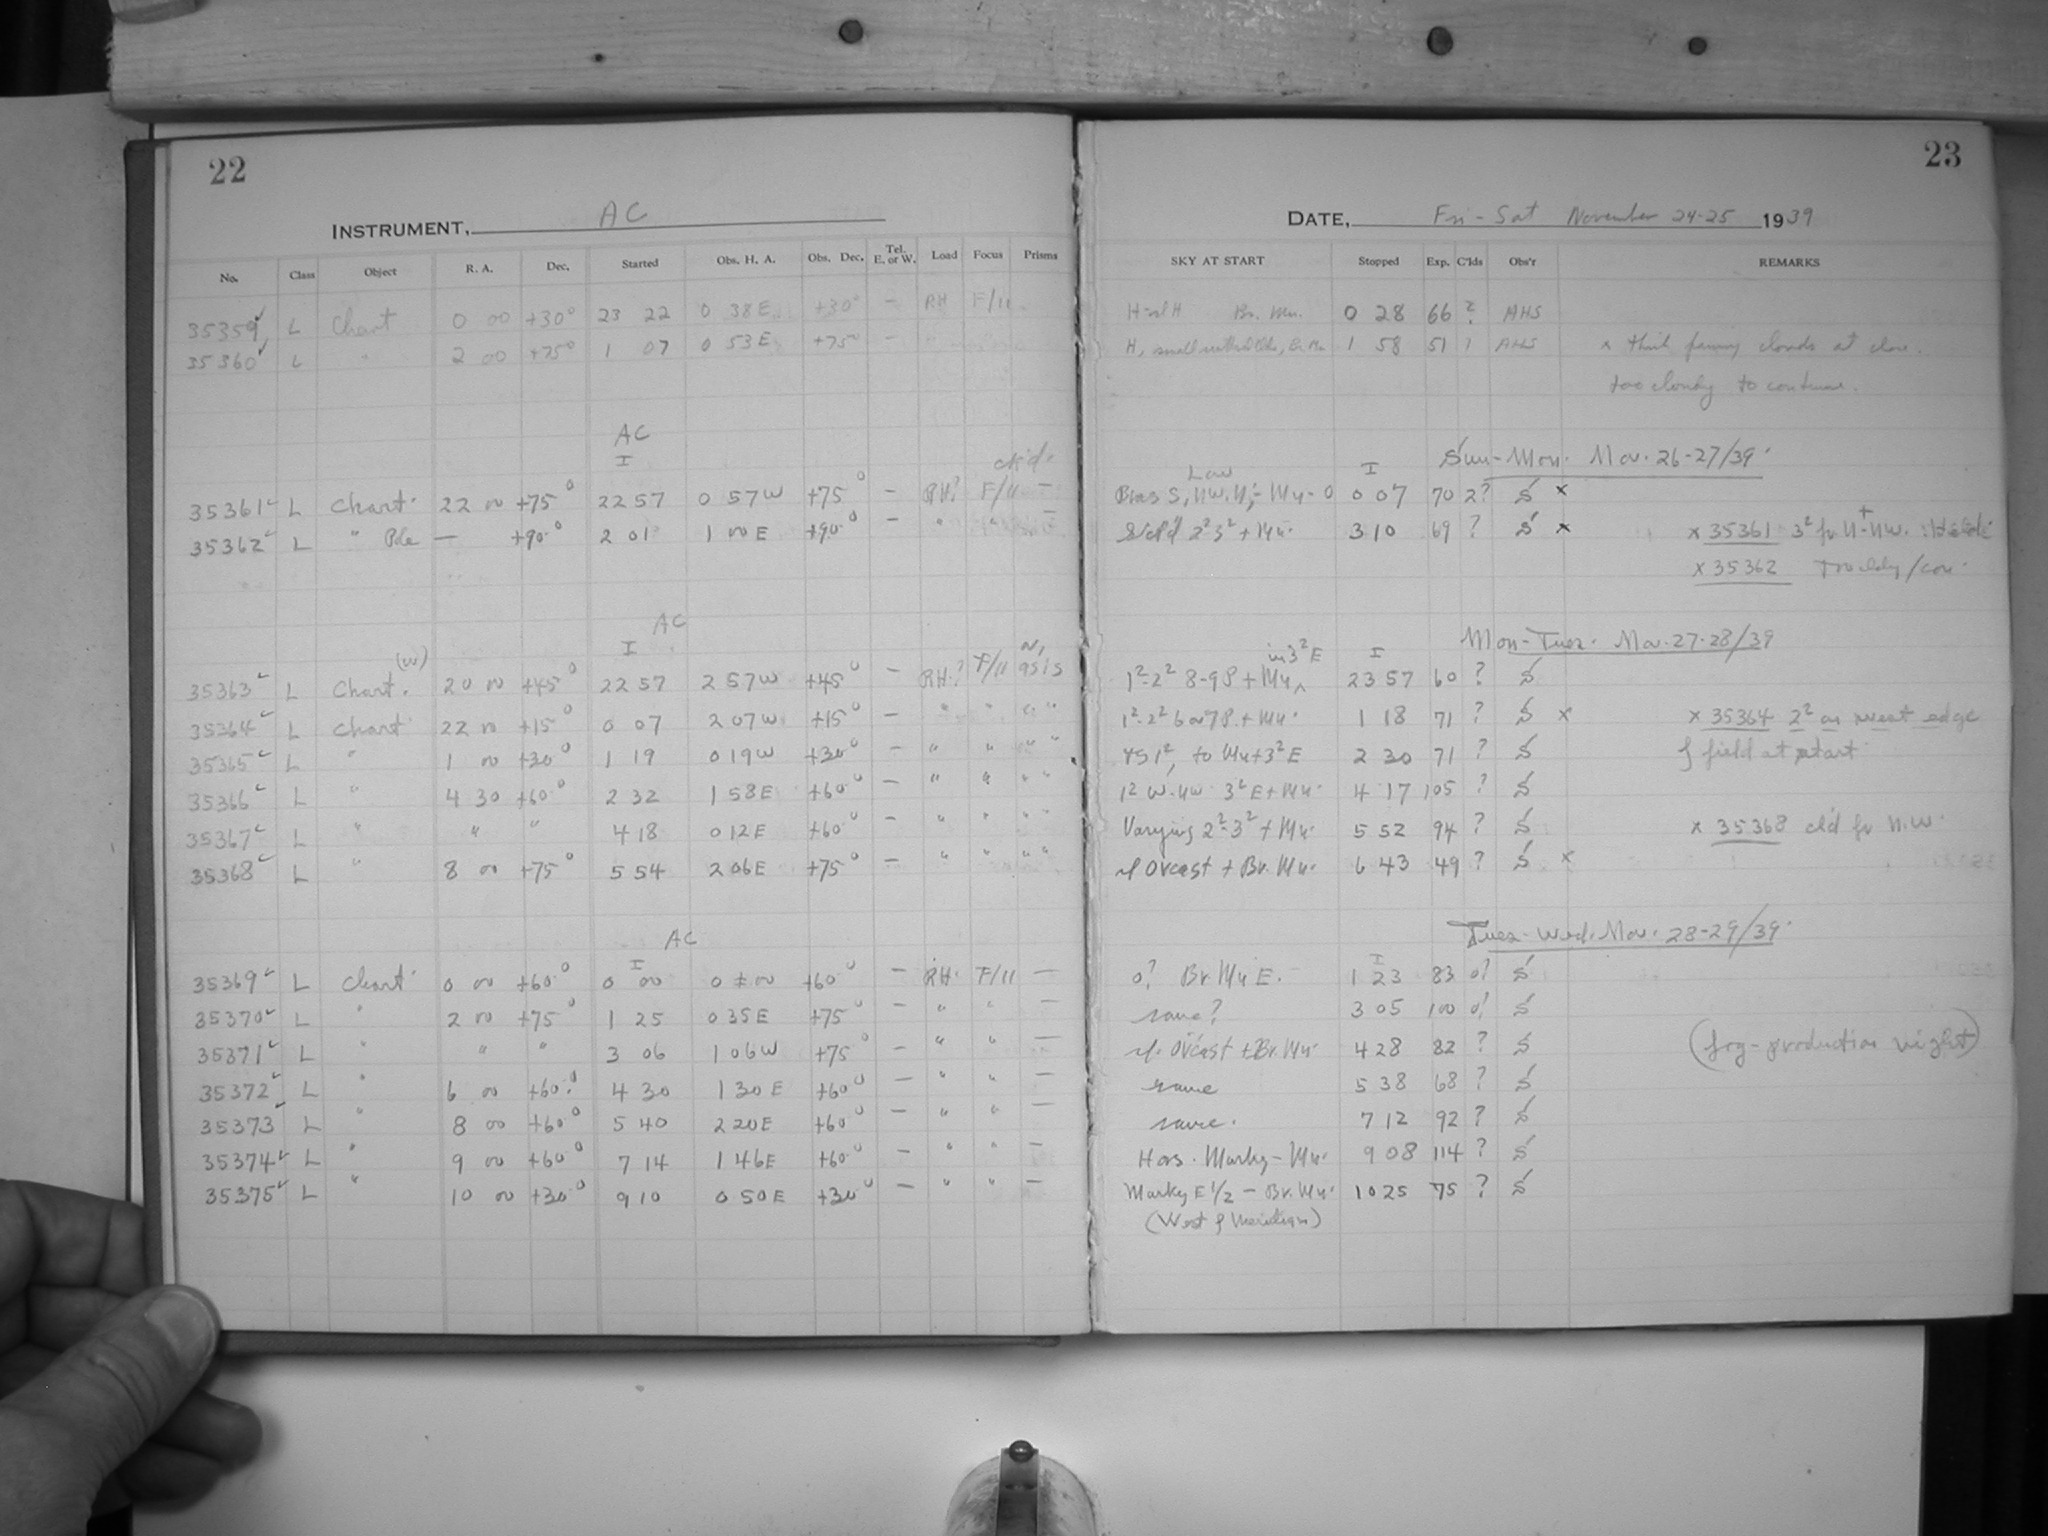 22
INSTRUMENT, AC
No. Class Object R. A. Dec. Started Obs. H. A. Obs. Dec. Tel. E. or W. Load Focus Prisms
35359 L Chart 0 00 +30° 23 22 0 38E +30° - RH F/11 -
35360 L " 2 00 +75° 1 07 0 53E +75° -
AC
I ck'd.
35361 L Chart. 22 00 +75° 22 57 0 57W +75° - RH? F/11 -
35362 L " Pole - +90° 2 01 1 00 E +90° - " " -
AC
I
35363 L Chart. (w) 20 00 +45° 22 57 2 57W +45° - RH? F/11
35364 L Chart 22 00 +15° 0 07 2 07W +15° - " " " "
35365 L " 1 00 +30° 1 19 0 19W +30° - " " " "
35366 L " 4 30 +60° 2 32 1 58E +60° - " " " "
35367 L " " " 4 18 0 12E +60° - " " " "
35368 L " 8 00 +75° 5 54 2 06E +75° - " " " "
AC
I
35369 L Chart 0 00 +60° 0 00 0 ± 00 +60° - RH. F/11 -
35370 L " 2 00 +75° 1 25 0 35E +75° - " " -
35371 L " " " 3 06 1 06W +75° - " " -
35372 L " 6 00 +60° 4 30 1 30 E +60° - " " -
35373 L " 8 00 +60° 5 40 2 20E +60° - " " -
35374 L " 9 00 +60° 7 14 1 46E +60° - " " -
35375 L " 10 00 +30° 9 10 0 50E +30° - " " -
23
DATE, Fri - Sat November 24-25 1939
SKY AT START Stopped Exp. C'lds Obs'r REMARKS
Br. Mn. 0 28 66 ? AHS
1 58 51 AHS x thick clouds at close.
too cloudy to continue.
Low I Sun-Mon. Nov. 26-27/39.
0 07 70 2? S x
3 10 69 ? S x x 35361
x 35362
in 3² E I Mon-Tues. Nov. 27-28/39
1²-2² 8-9P + Mn 23 57 60 ? S
1²-2² 6 or 7P. + Mn. 1 18 71 ? S x x 35364 2² on west edge
to Mn+3²E 2 30 71 ? S of field at start
1² W-NW 3² E + Mn. 4 17 105 ? S
Varying 2²-3² + Mn. 5 52 94 ? S x 35368 cl'd fr N.W.
Ovcast + Br. Mn. 6 43 49 ? S x
Tues-Wed. Nov. 28-29/39.
I
0? Br. Mn E. 1 23 83 0? S
same? 3 05 100 0? S
Ovcast + Br. Mn. 4 28 82 ? S (fog-production night)
same 5 38 68 ? S
same. 7 12 92 ? S
Hors. Murky - Mn. 9 08 114 ? S
Murky E 1/2 - Br. Mn. 10 25 75 ? S
(West of Meridian)